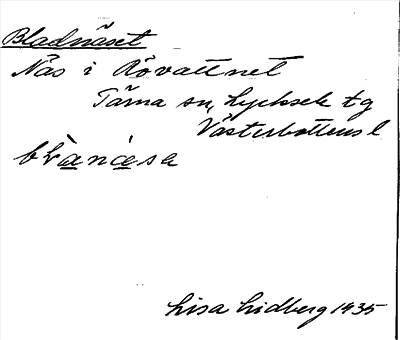 Bladnäset
Näs i Rövattnet
Tärna sn, Lycksele tg
Västerbottens l
blànása
Lisa Lidberg 1935